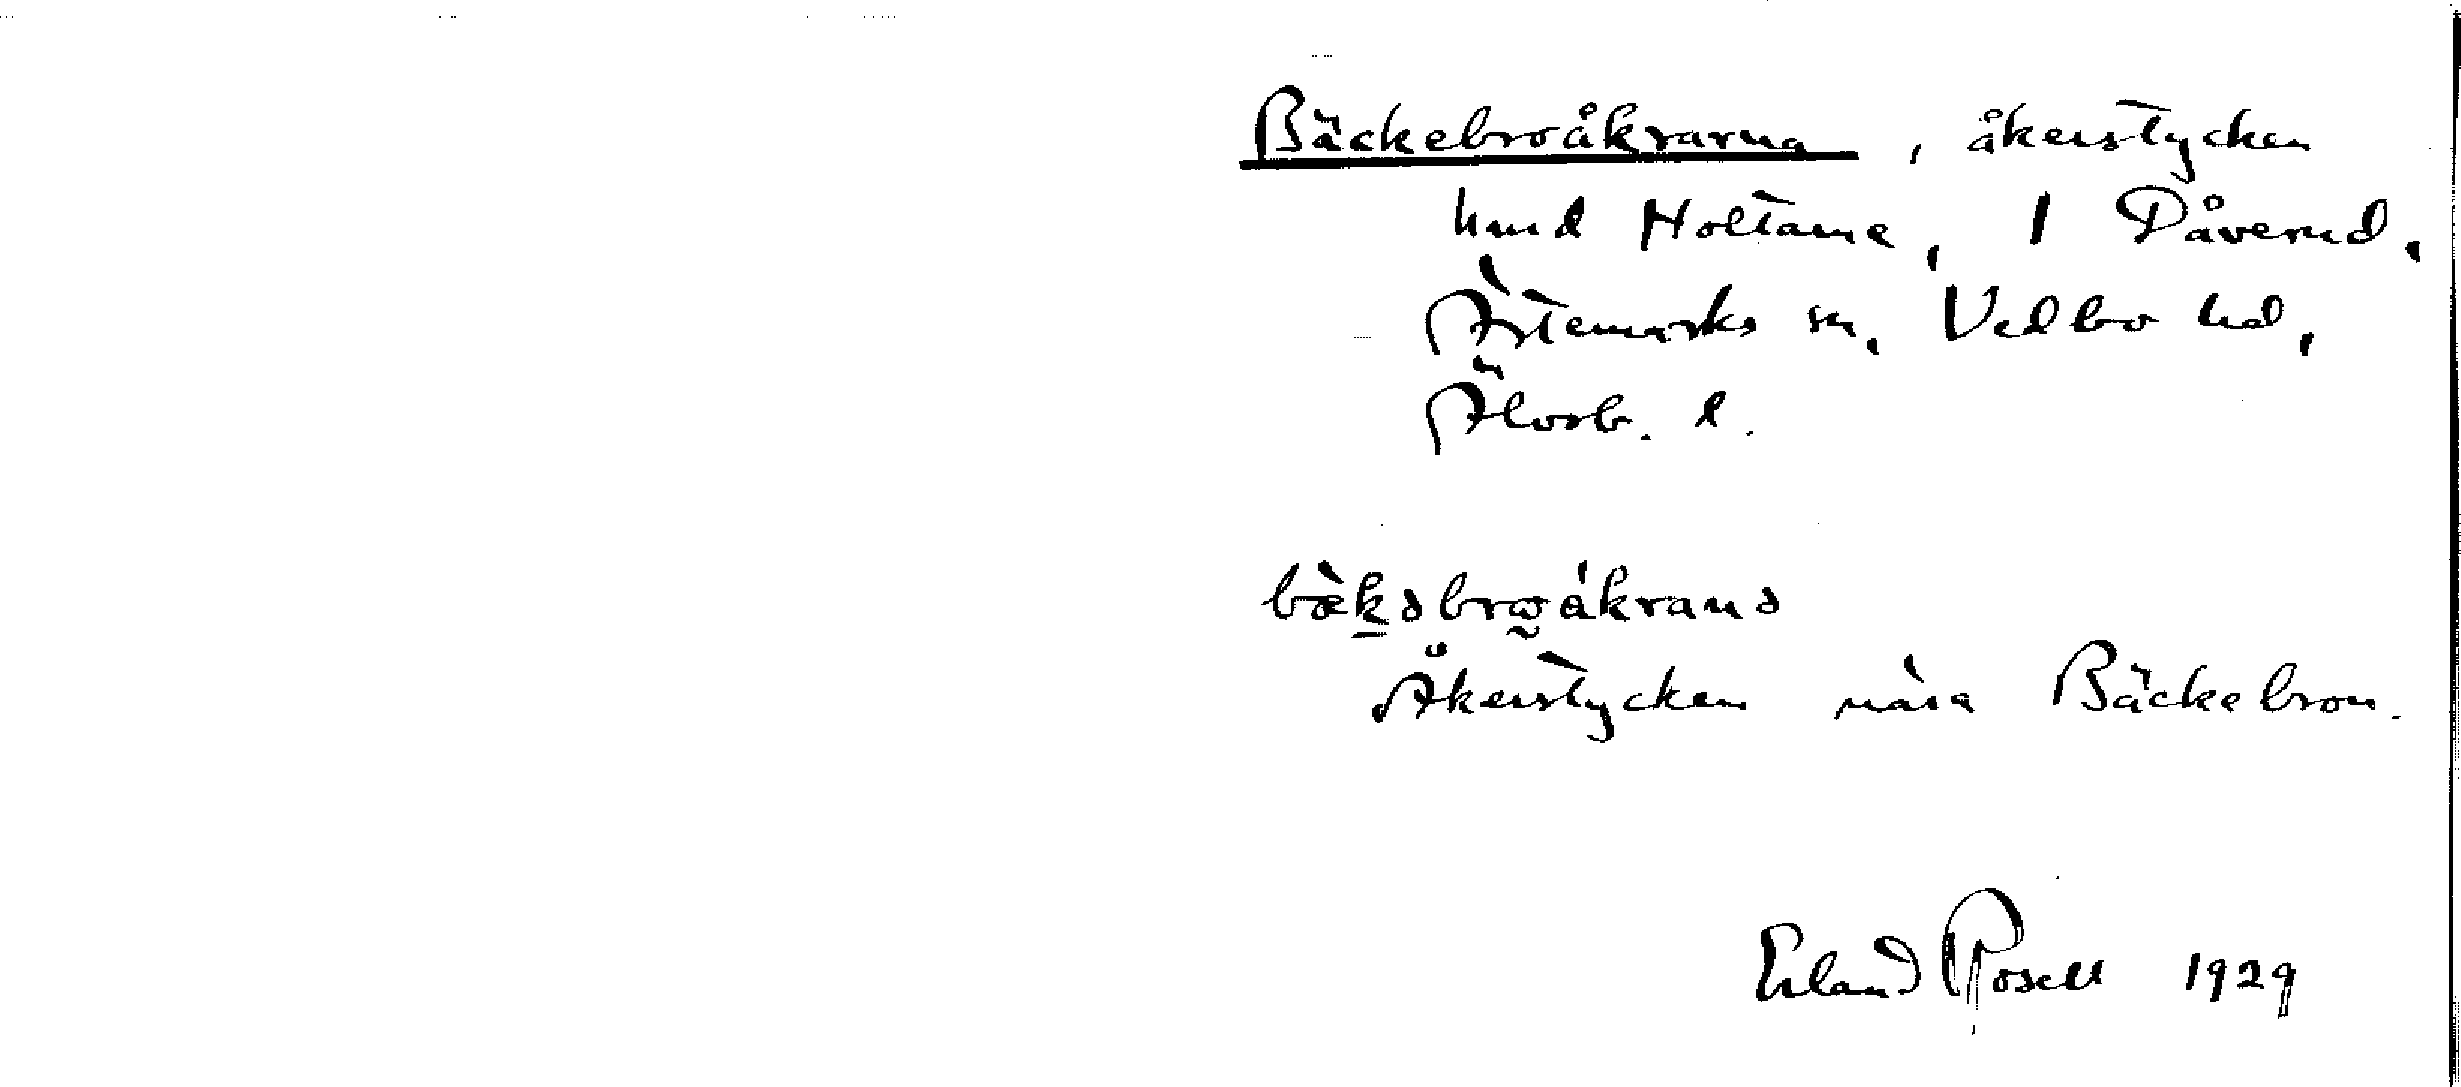 Bäckebroåkrarna, åkerstycken
und Holtane, 1 Påverud,
Ärtemarks sn, Vedbo hd,
Älvsb. l.
bæ̀kəbroåkranə
Åkerstycken nära Bäckebron.
Erland Rosell 1929